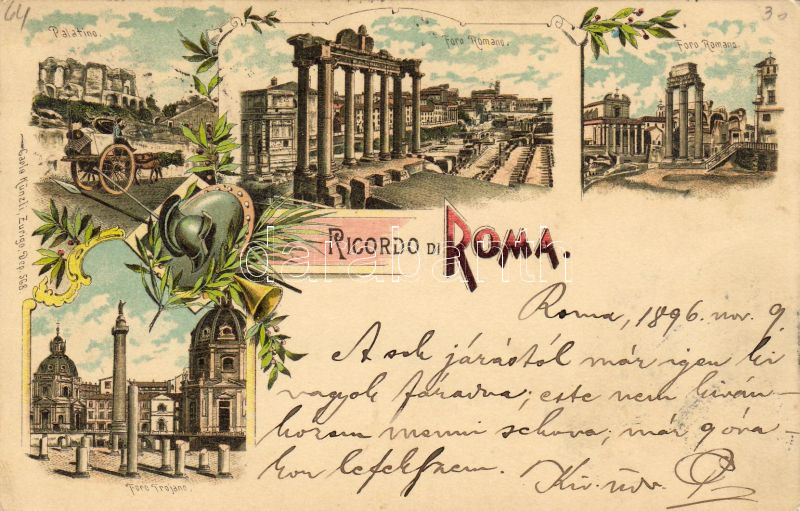 64
30
Palatino.
Foro Romano.
Foro Romano.
Carlo Künzli, Zurigo. Dep. 568.
RICORDO DI ROMA.
darabanth
Foro Trojano.
Roma, 1896. nov. 9.
A sok járástól már igen ki
vagyok fáradva; este nem kiván-
kozom menni sehova; már
kor lefekszem.
Kiv. üdv.